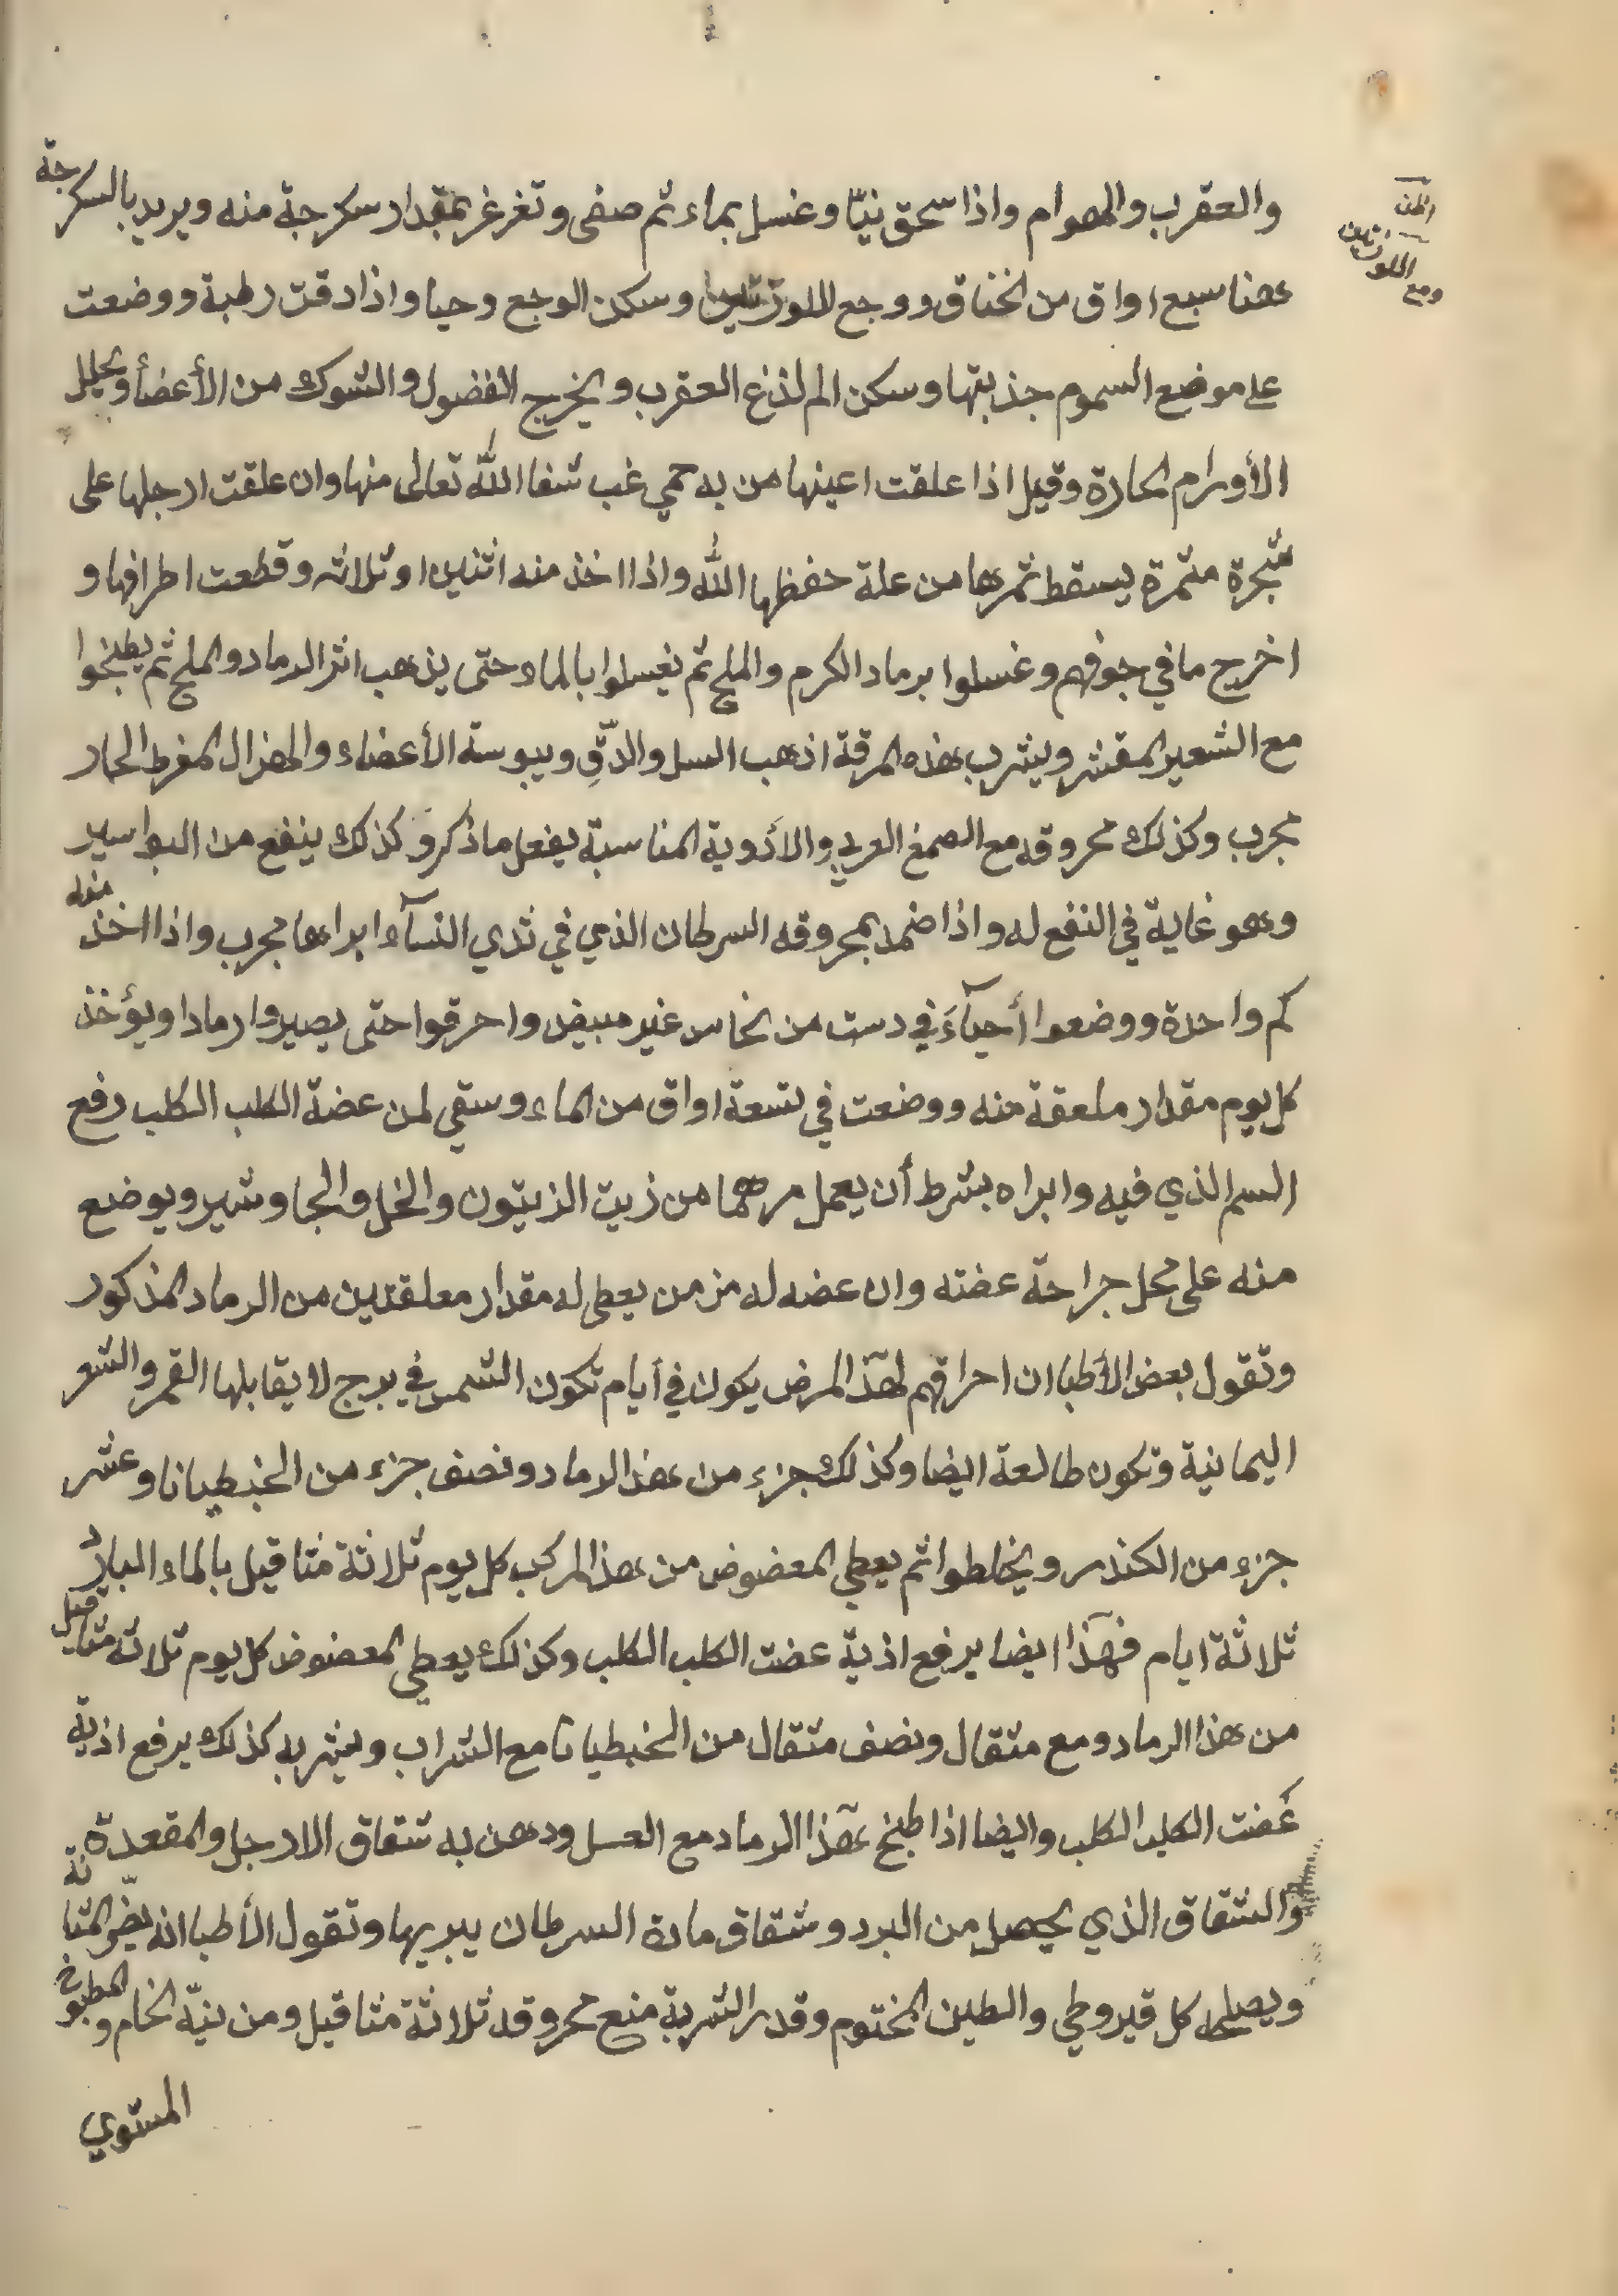 والعقرب والهوام واذا سحق نيّا وغسل بماء ثم صفى وتغرغر بمقدار سكرجة منه ويريد بالسكرجة
هنا سبع اواق من الخناق ووجع اللوزتين وسكن الوجع وحيا واذا دقت رطبة ووضعت
على موضع السموم جذبتها وسكن الم لذغ العقرب ويخرج الفضول والشوك من الأعضأ ويحلل
الأورام الحارة وقيل اذا علقت اعينها من به حمي غب شفا الله تعالى منها وان علقت ارجلها على
شجرة مثمرة يسقط ثمرها من علة حفظها الله واذا اخذ منه اثنين او ثلاثه وقطعت اطرافها و
اخرج ما في جوفهم وغسلوا برماد الكرم والملح ثم يغسلوا بالماء حتى يذهب اثر الرماد والملح ثم يطبخوا
مع الشعير المقشر ويشرب هذه المرقة اذهب السل والدّقِ ويبوسة الأعضاء والهزال المفرط الحار
مجرب وكذلك محروقه مع الصمغ العربي والأدوية المناسبة يفعل ما ذكر وكذلك ينفع من البواسير
وهو غاية في النفع له واذا ضمد بمحروقه السرطان الذي في ثدي النسآء ابراها مجرب واذا اخذ منه
كم واحدة ووضعوا أحيآءَ في دست من نحاس غير مبيض واحرقوا حتى يصيروا رمادا ويؤخذ
كل يوم مقدار ملعقة منه ووضعت في تسعة اواق من الماء وسقي لمن عضة الكلب الكلب رفع
السم الذي فيه وابراه بشرط أن يعمل مرهما من زيت الزيتون والخل والجاوشير ويوضع
منه على محل جراحة عضته وان عضه له مزمن يعطى له مقدار معلقتين من الرماد المذكور
وتقول بعض الأطبا ان احراقهم لهذا المرض يكون في أيام تكون الشمس في برج لا يقابلها القمر والشعر
اليمانية وتكون طالعة ايضا وكذلك جزء من هذا الرماد ونصف جزء من الخبطيانا وعشر
جزء من الكندر ويخلطوا ثم يعطي المعضوض من هذا المركب كل يوم ثلاثة مثاقيل بالماء البارد
ثلاثة ايام فهذا ايضا يرفع اذية عضت الكلب الكلب وكذلك يعطي المعضوض كل يوم ثلاثه مثاقيل
من هذا الرماد ومع مثقال ونصف مثقال من الخبطيانا مع الشراب ويشربه كذلك يرفع اذية
عَضت الكلب الكلب وايضا اذا طبخ هذا الرماد مع العسل ودهن به شقاق الارجل والمقعدة
والشقاق الذي يحصل من البرد وشقاق مادة السرطان يبريها وتقول الأطبا انه يضّر المثانة
ويصلحه كل قيروطي والطين المختوم وقدر الشربة منع محروقه ثلاثة مثاقيل ومن نيّة الخام والمطبوخ
المستوي
اللوزتين
ومع